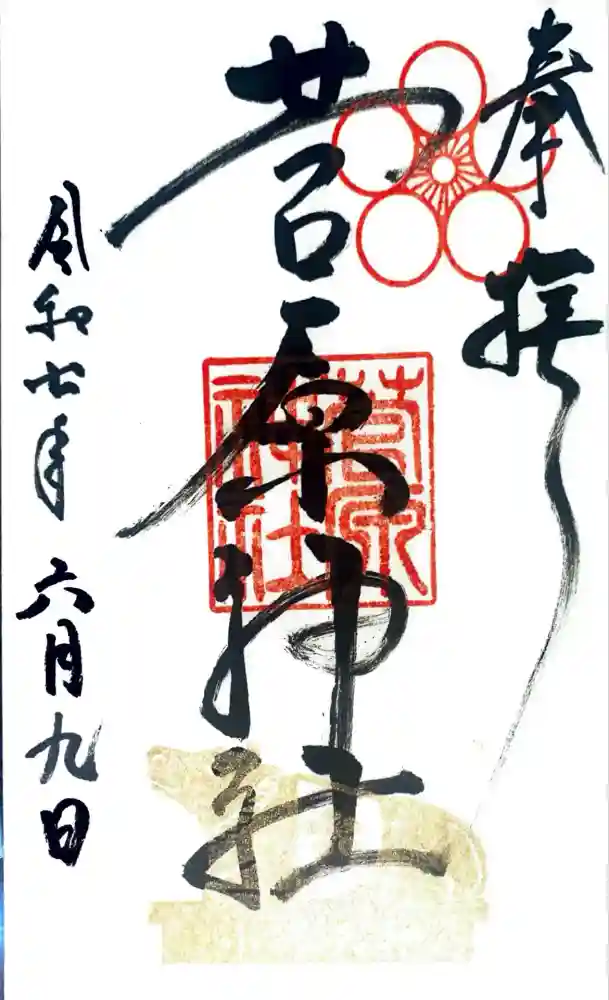 奉拝
菅原神社
菅原神社
令和七年六月九日